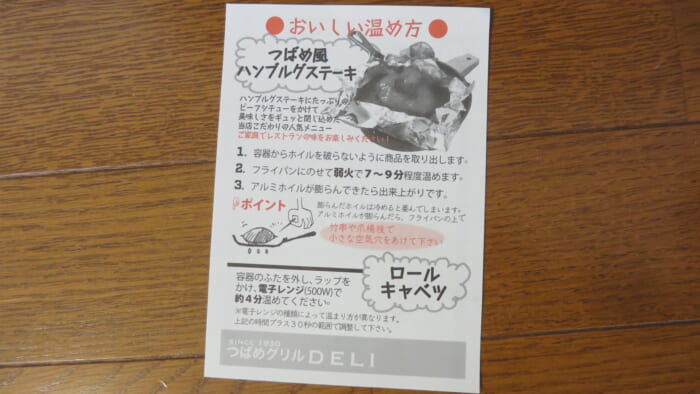 ●おいしい温め方●
つばめ風
ハンブルグステーキ
ハンブルグステーキにたっぷりの
ビーフシチューをかけて
美味しさをギュッと閉じ込めた
当店こだわりの人気メニュー
ご家庭でレストランの味をお楽しみください！
1. 容器からホイルを破らないように商品を取り出します。
2. フライパンにのせて弱火で7～9分程度温めます。
3. アルミホイルが膨らんできたら出来上がりです。
ポイント
膨らんだホイルは冷めると萎んでしまいます。
アルミホイルが膨らんだら、フライパンの上で
竹串や爪楊枝で
小さな空気穴をあけて下さい
ロール
キャベツ
容器のふたを外し、ラップを
かけ、電子レンジ(500W)で
約4分温めてください。
※電子レンジの種類によって温まり方が異なります。
上記の時間プラス30秒の範囲で調整して下さい。
SINCE 1930
つばめグリルDELI